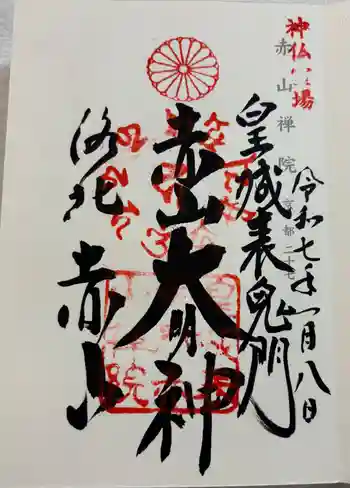 神仏霊場
赤山禅院
京都二十七
令和七年一月八日
皇城表鬼門
赤山大明神
洛北 赤山